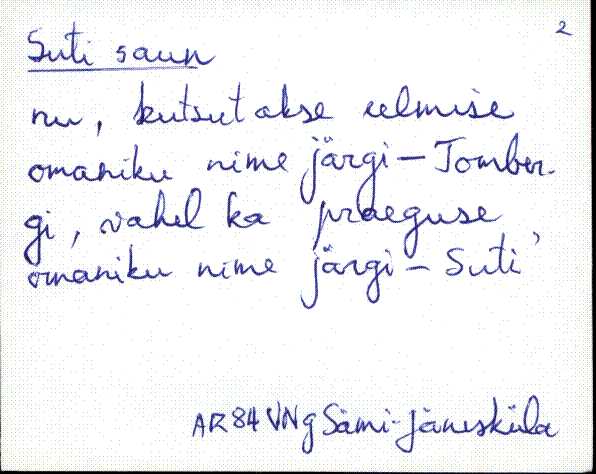 2
Suti saun
nu, kutsutakse eelmise
omaniku nime järgi – Tomber-
gi, vahel ka praeguse
omaniku nime järgi – Suti'
AR 84 VNg Sämi-Jänesküla